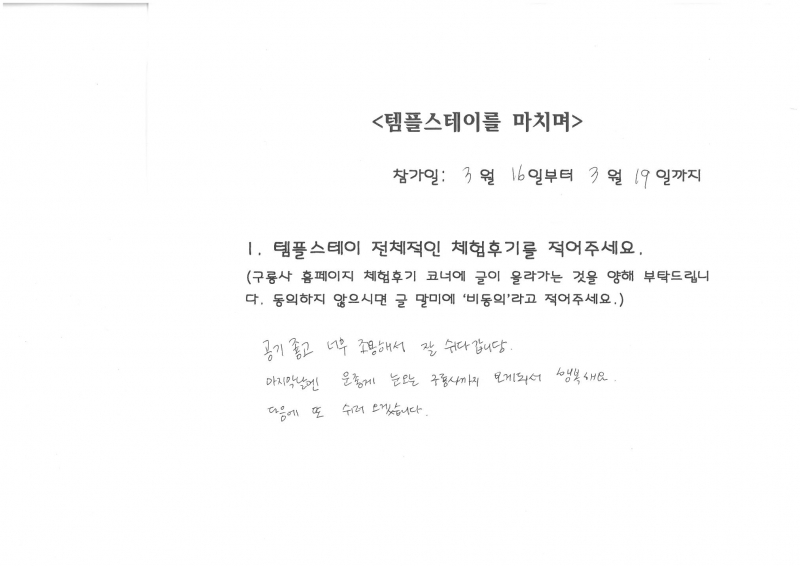 <템플스테이를 마치며>
참가일: 3월 16일부터 3월 19일까지
1. 템플스테이 전체적인 체험후기를 적어주세요.
(구룡사 홈페이지 체험후기 코너에 글이 올라가는 것을 양해 부탁드립니
다. 동의하지 않으시면 글 말미에 '비동의'라고 적어주세요.)
공기 좋고 너무 조용해서 잘 쉬다갑니당.
마지막날엔 운좋게 눈오는 구룡사까지 보게되서 행복해요.
다음에 또 쉬러 오겠습니다.